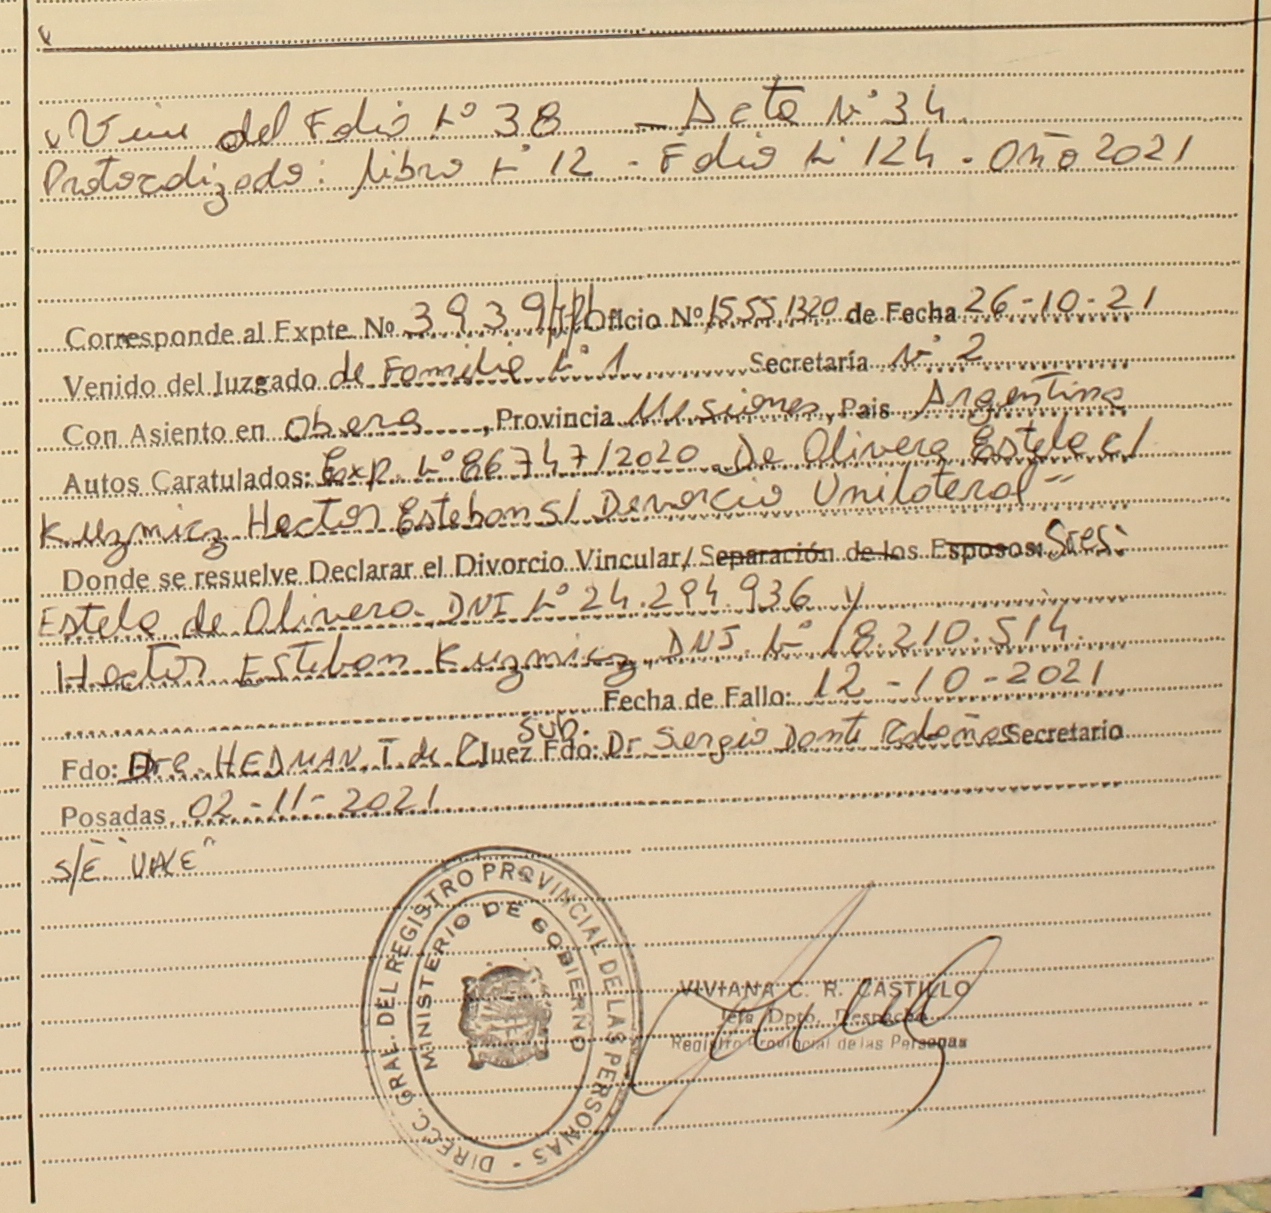 Viene del Folio Nº 38 - Acta Nº 34.
Protocolizado: Libro Nº 12 - Folio Nº 124 - Año 2021
Corresponde al Expte Nº 3939 Oficio Nº 1555/1320 de Fecha 26-10-21
Venido del Juzgado de Familia Nº 1 Secretaría Nº 2
Con Asiento en Obera, Provincia Misiones, Pais Argentina
Autos Caratulados: Exp. Nº 86747/2020 De Olivera Estela c/
Kuzmicz Hector Esteban S/ Divorcio Unilateral"
Donde se resuelve Declarar el Divorcio Vincular/ Separación de los Esposos: Sres:
Estela de Olivera. DNI Nº 24.294.936 y
Hector Esteban Kuzmicz, DNI. Nº 18.210.514.
Fecha de Fallo: 12-10-2021
Sub.
Fdo: Dra. HEDMAN, T. de Juez Fdo: Dr Sergio Dante Secretario
Posadas, 02-11-2021
S/E "VALE"
DIRECC. GRAL. DEL REGISTRO PROVINCIAL DE LAS PERSONAS -
MINISTERIO DE GOBIERNO
VIVIANA C. R. CASTILLO
Jefa Dpto. Despacho
Registro Provincial de las Personas